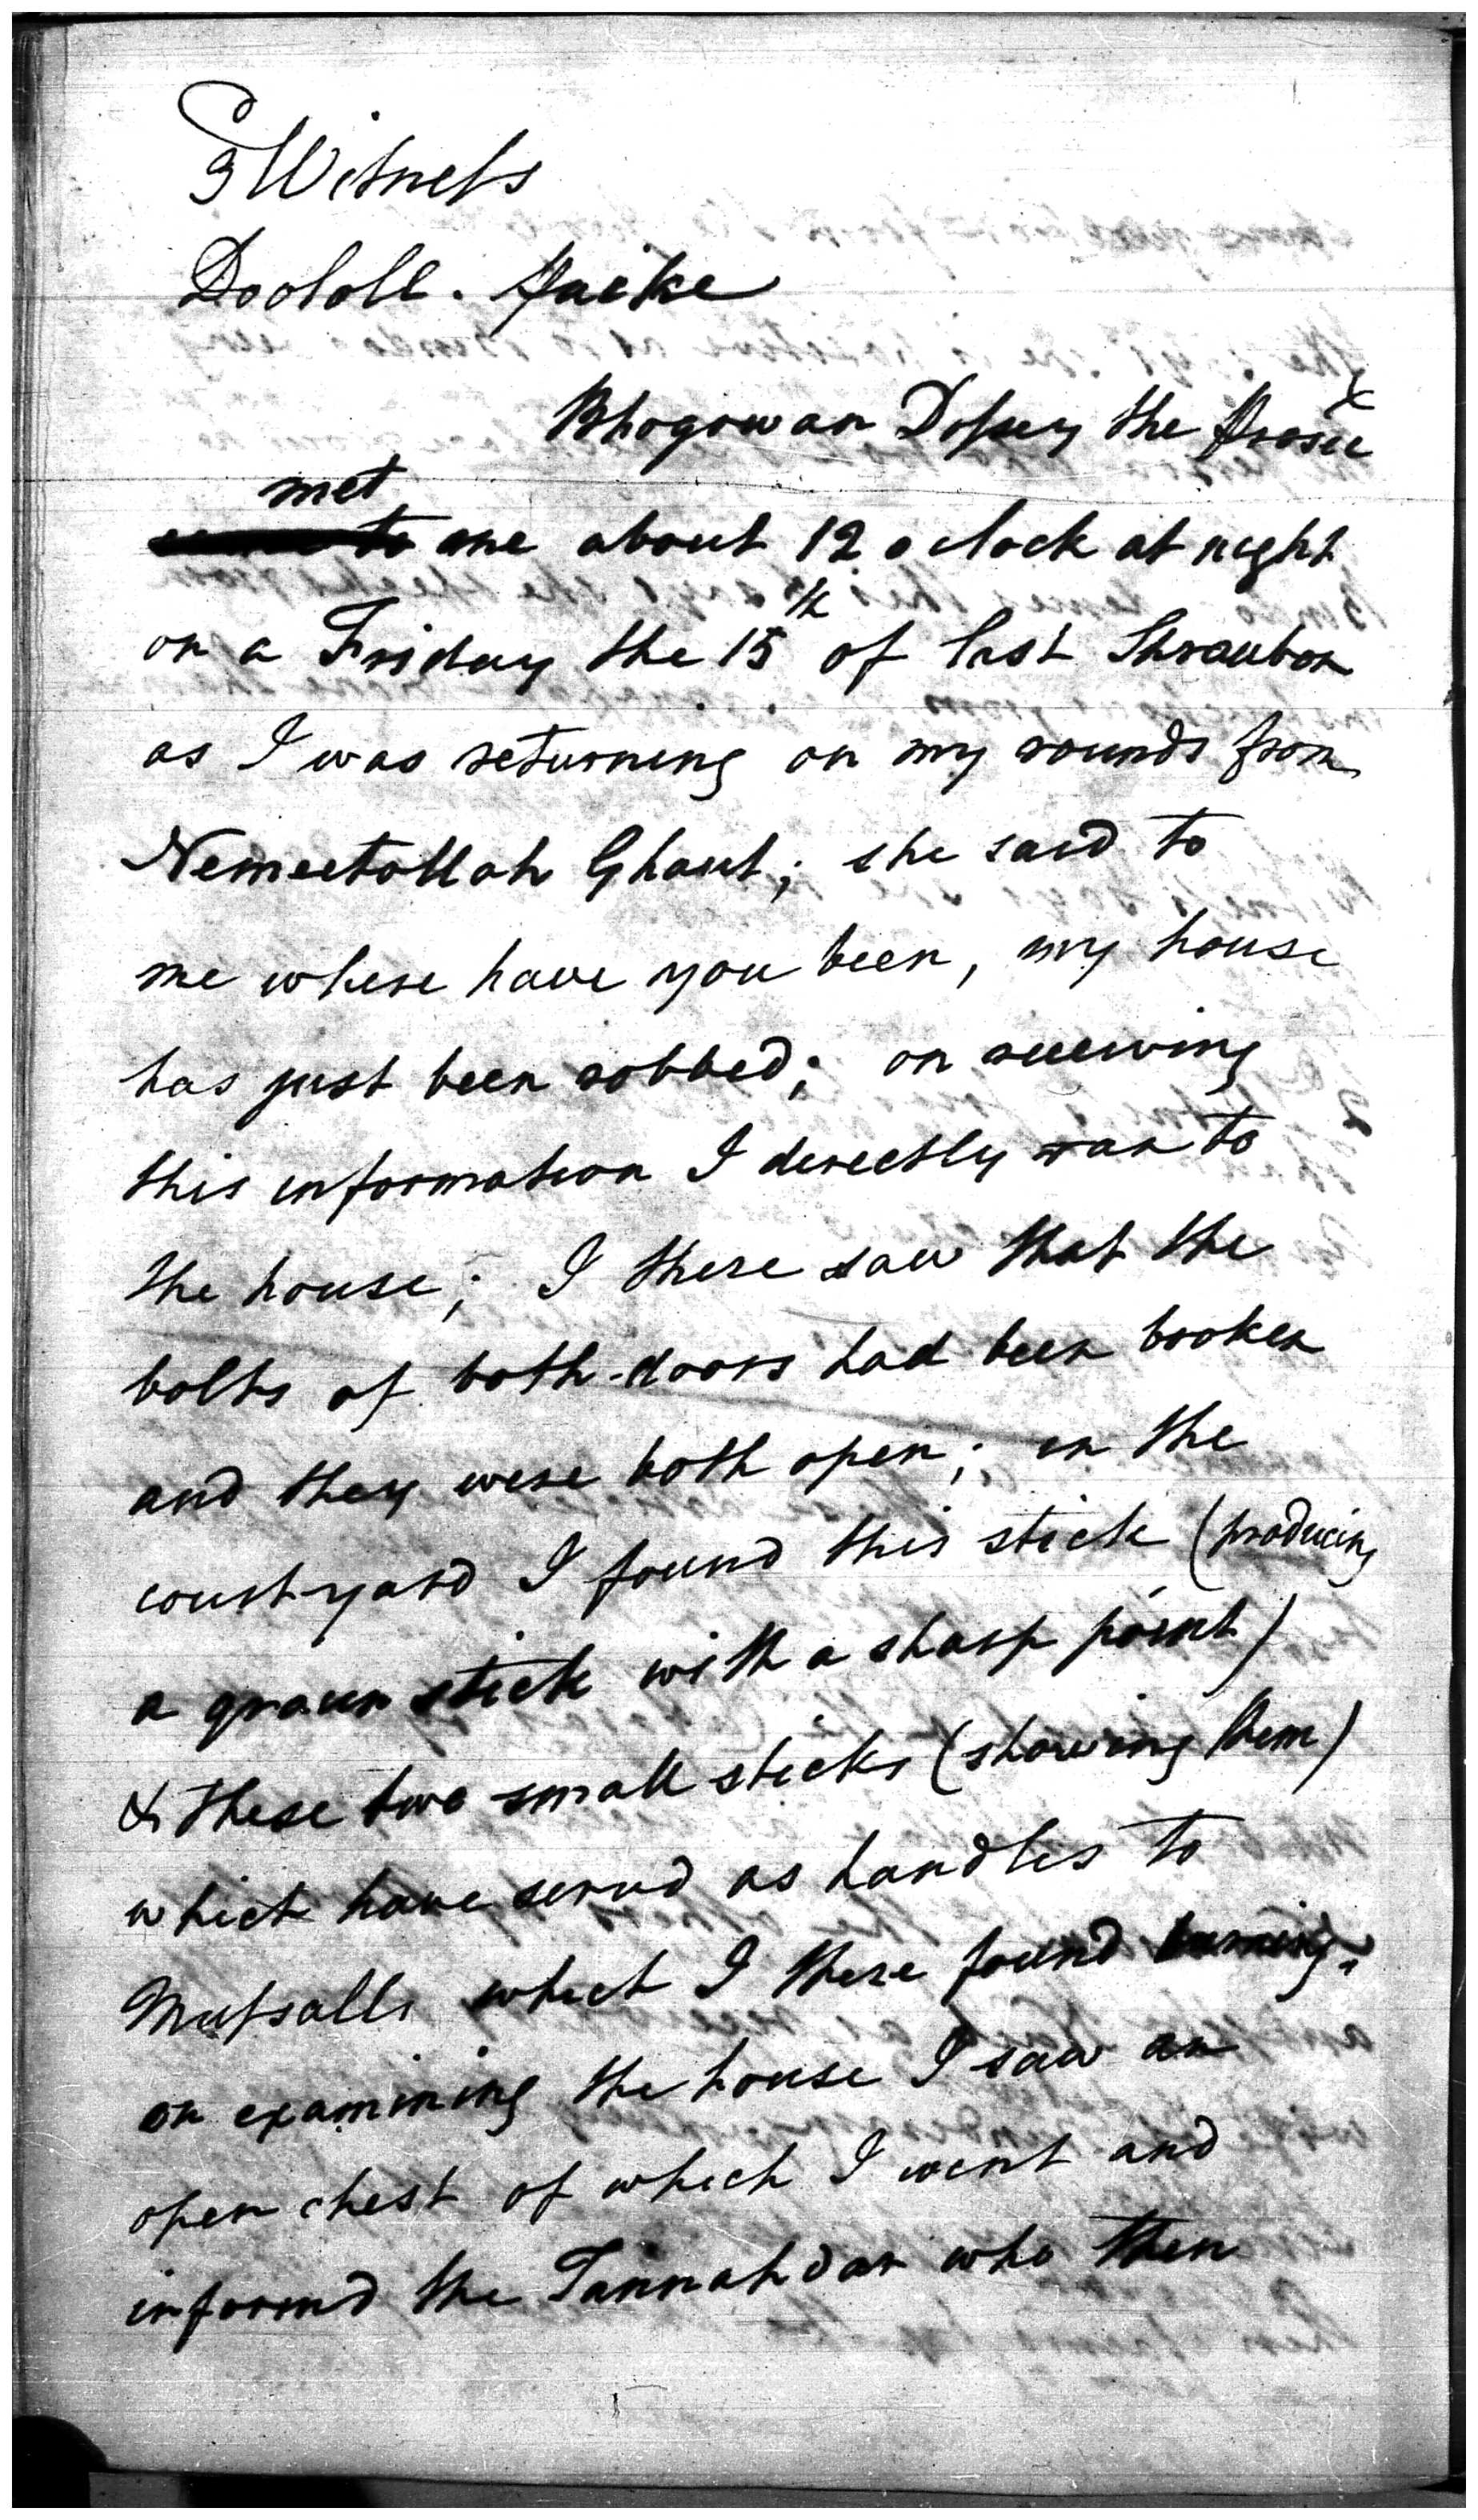 3 Witness
Doololl. Paike
Bhogowan Dossey the Prosec^x
met
came to me about 12 o clock at night
on a Friday the 15th of last Shraubon
as I was returning on my rounds from
Nemeetollah Ghaut; she said to
me where have you been, my house
has just been robbed; on receiving
this information I derectly ran to
the house; I there saw that the
bolts of both doors had been broken
and they were both open; in the
court-yard I found this stick (producing
a graun stick with a sharp point)
& these two small sticks (showing them)
which have servd as handles to
Mussalls which I there found burning.
on examining the house I saw an
open chest of which I went and
informd the Tannahdar who then